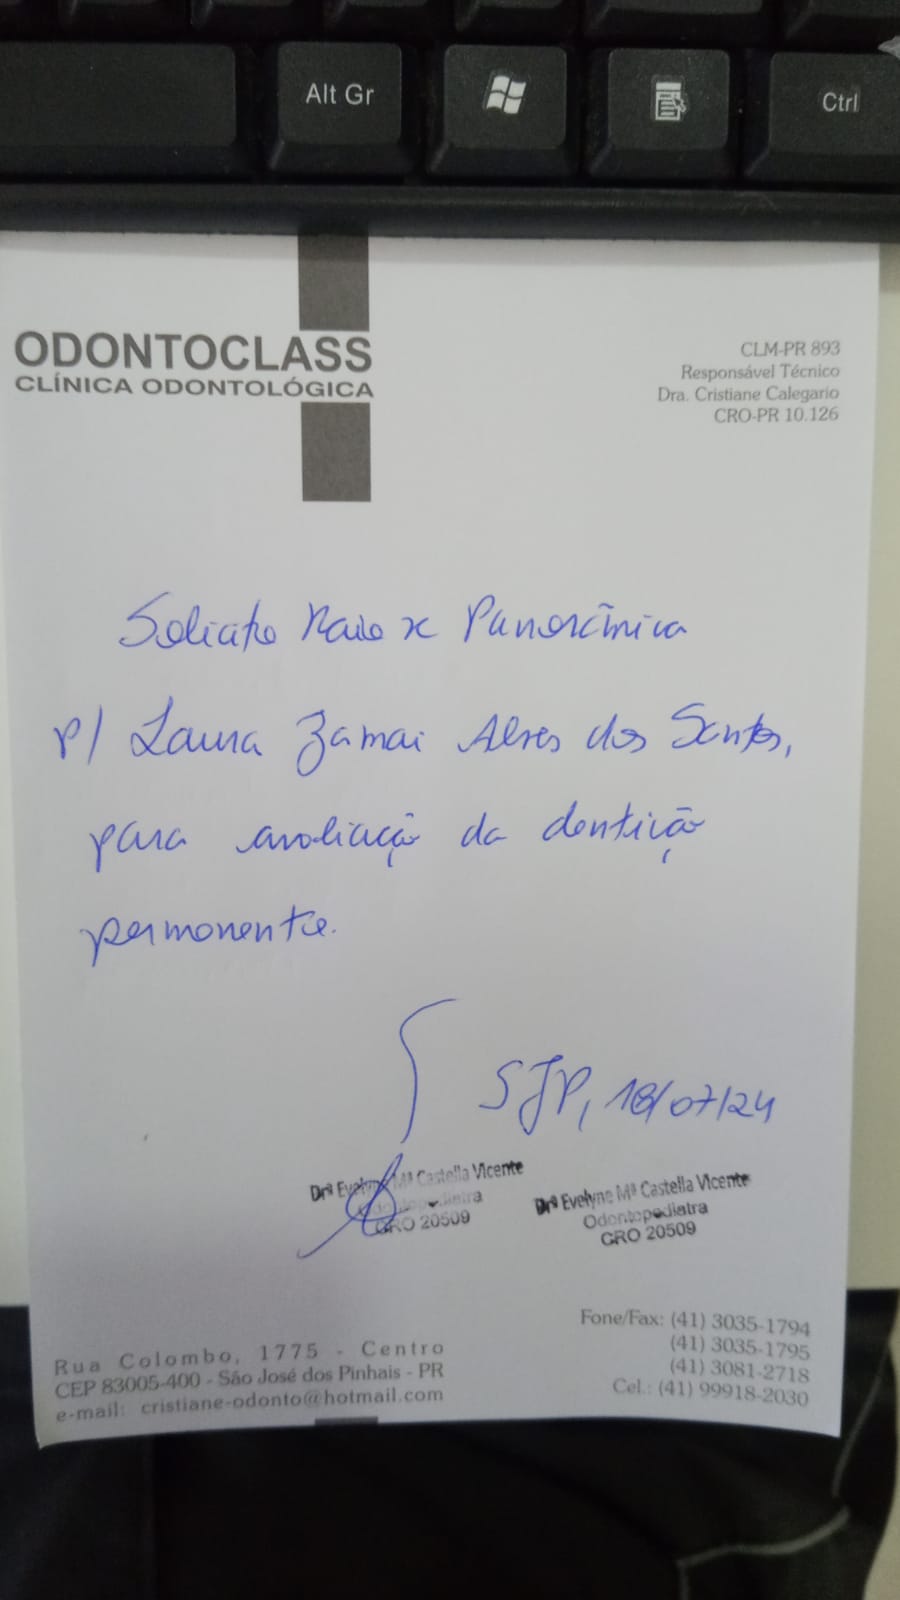 Alt Gr
Ctrl
ODONTOCLASS
CLÍNICA ODONTOLÓGICA
CLM-PR 893
Responsável Técnico
Dra. Cristiane Calegario
CRO-PR 10.126
Solicito Raio x Panorâmica
p/ Laura Zamai Alves dos Santos,
para avaliação da dentição
permanente.
SJP, 18/07/24
Drª Evelyne Mª Castella Vicente
Odontopediatra
CRO 20509
Drª Evelyne Mª Castella Vicente
Odontopediatra
CRO 20509
Rua Colombo, 1775 - Centro
CEP 83005-400 - São José dos Pinhais - PR
e-mail: cristiane-odonto@hotmail.com
Fone/Fax: (41) 3035-1794
(41) 3035-1795
(41) 3081-2718
Cel.: (41) 99918-2030